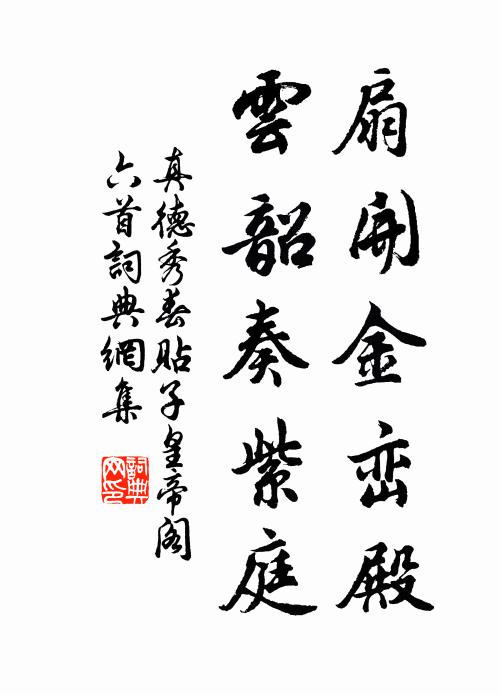 扇開金峦殿
雲韶奏紫庭
真德秀春貼子皇帝阁
六首詞典網集
詞典网印